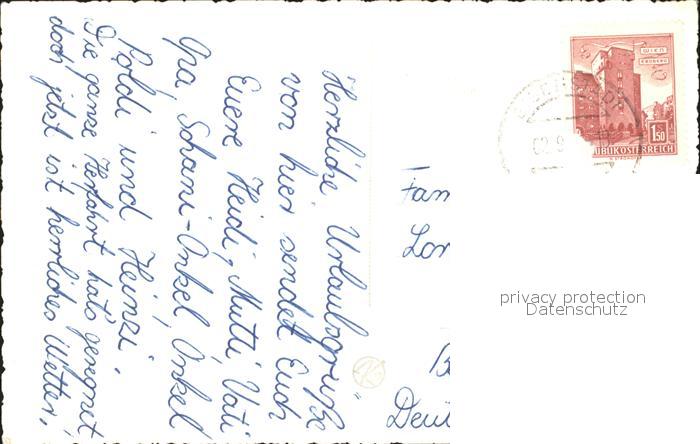 Herzliche Urlaubsgrüße
von hier sendet Euch
Euere Heidi, Mutti, Vati
Opa, Schani-Onkel, Onkel
Poldi und Heinzi.
Die ganze Herfahrt hats geregnet
doch jetzt ist herrliches Wetter.
Fam
Lor
B
Deu
WIEN
ERDBERG
1.50
REPUBLIK ÖSTERREICH
privacy protection
Datenschutz